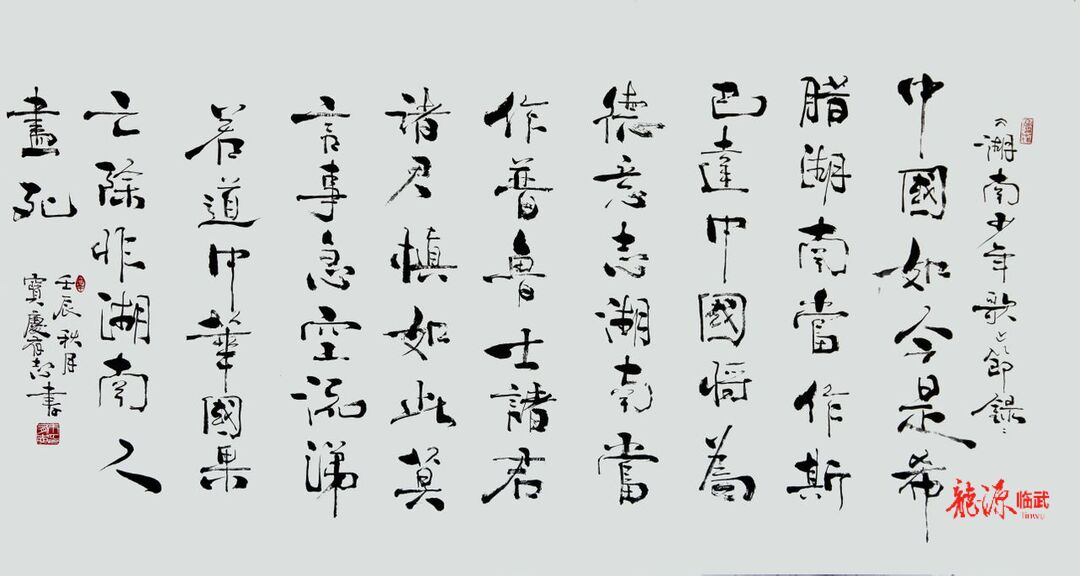 《湖南少年歌》節錄
中國如今是希
腊湖南當作斯
巴達中國将為
德意志湖南當
作普魯士諸君
諸君慎如此莫
言事急空流涕
若道中華國果
亡除非湖南人
盡死
壬辰秋月
寶慶有志書
龍源 临武
linwu